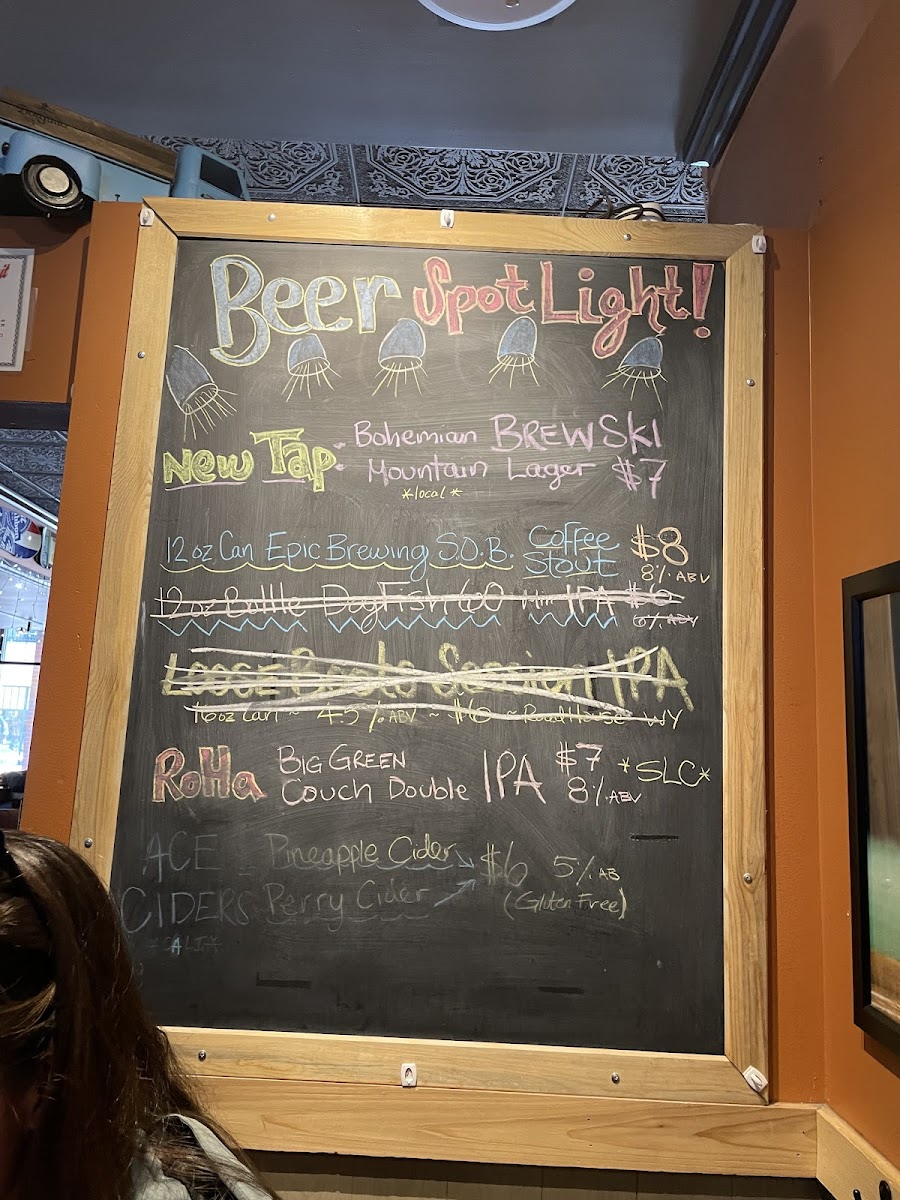 Beer SpotLight!
New Tap: Bohemian BREWSkI
Mountain Lager $7
*local*
12 oz Can Epic Brewing S.O.B. Coffee Stout $8
8% ABV
12 oz Bottle DogFish 60 Min IPA $6
6% ABV
Loose Boots Session IPA
16oz Can ~ 4.5% ABV ~ $6 ~ RoadHouse WY
RoHa BIG GREEN
Couch Double IPA $7 8% ABV *SLC*
ACE Pineapple Cider $6 5% AB
CIDERS Perry Cider (Gluten Free)